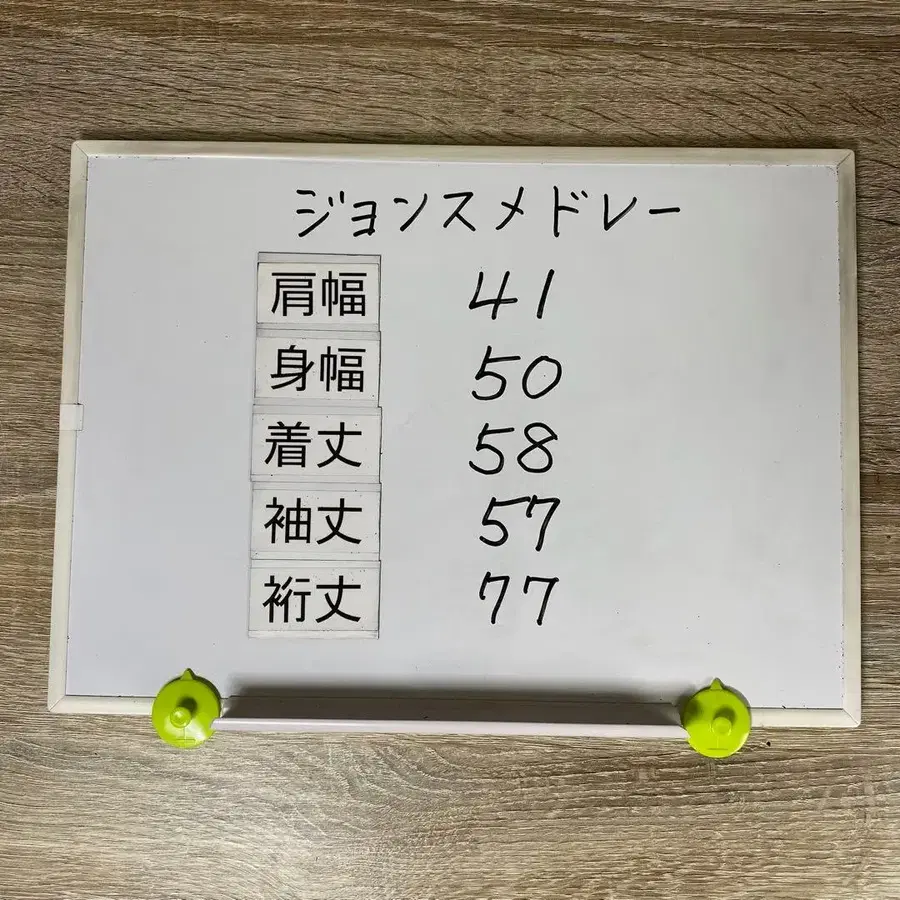 ジョンスメドレー
肩幅 41
身幅 50
着丈 58
袖丈 57
裄丈 77